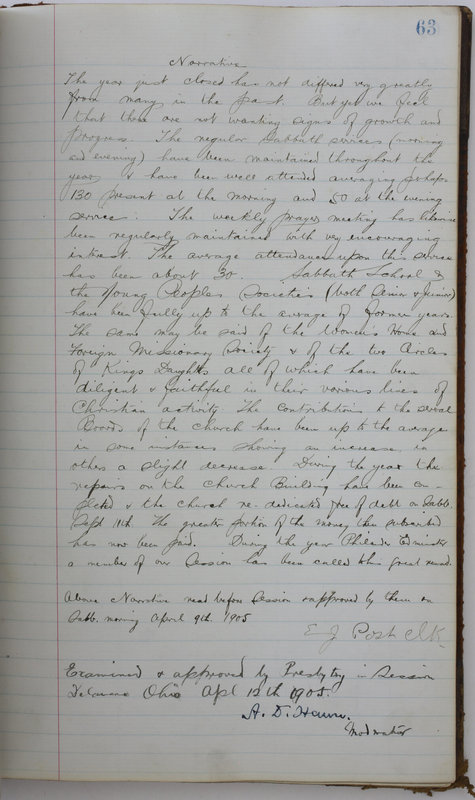 63
Narrative
The year just closed has not differed very greatly
from many in the past. But yet we feel
that there are not wanting signs of growth and
progress. The regular Sabbath services (morning
and evening) have been maintained throughout the
year & have been well attended averaging perhaps
130 present at the morning and 50 at the evening
service. The weekly prayer meeting has likewise
been regularly maintained with very encouraging
interest. The average attendance upon this service
has been about 30. Sabbath School &
the Young Peoples Societies (both Senior & Junior)
have been fully up to the average of former years.
The same may be said of the Women's Home and
Foreign Missionary Society & of the two Circles
of Kings Daughters all of which have been
diligent & faithful in their various lines of
Christian activity. The contributions to the several
Boards of the church have been up to the average
in some instances showing an increase in
others a slight decrease. During the year the
repairs on the Church Building have been com-
pleted & the church re-dedicated free of debt on Sabb.
Sept 11th. The greater portion of the money then subscribed
has now been paid. During the year Philander
a member of our Session has been called to his great reward.
Above Narrative read before Session & approved by them on
Sabb. morning April 9th. 1905
E J Post Clk.
Examined & approved by Presbytery in Session
Delaware Ohio Apl 12th 1905.
A. D.
Moderator